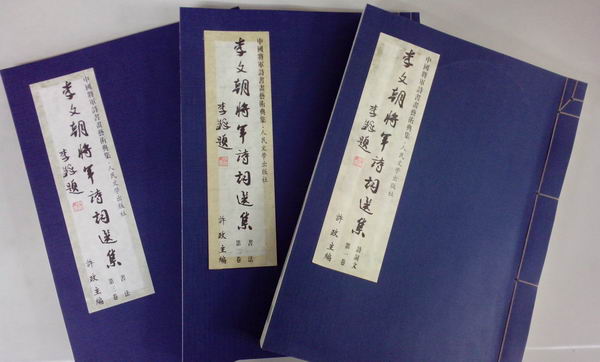 中國將軍詩書畫藝術典集·人民文学出版社
李文朝將軍诗词選集
李鐸題
書法
第三卷
許政主編
中國將軍詩書畫藝術典集·人民文学出版社
李文朝將軍诗词選集
李鐸題
書法
第二卷
許政主編
中國將軍詩書畫藝術典集·人民文学出版社
李文朝將軍诗词選集
李鐸題
詩詞文
第一卷
許政主編